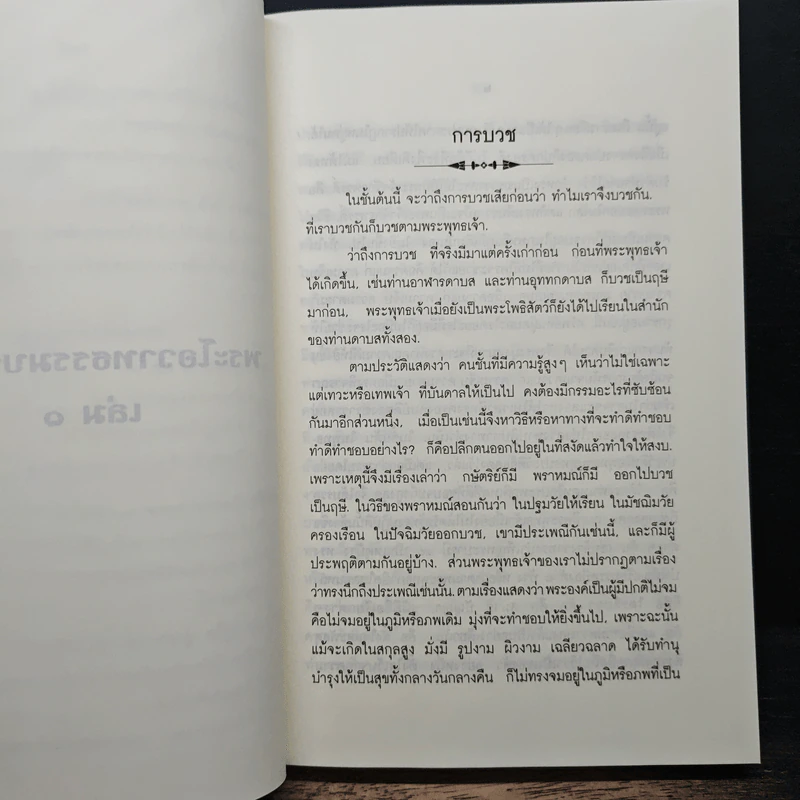 การบวช
ในชั้นต้นนี้ จะว่าถึงการบวชเสียก่อนว่า ทำไมเราจึงบวชกัน.
ที่เราบวชกันก็บวชตามพระพุทธเจ้า.
ว่าถึงการบวช ที่จริงมีมาแต่ครั้งเก่าก่อน ก่อนที่พระพุทธเจ้า
ได้เกิดขึ้น, เช่นท่านอาฬารดาบส และท่านอุททกดาบส ก็บวชเป็นฤษี
มาก่อน, พระพุทธเจ้าเมื่อยังเป็นพระโพธิสัตว์ก็ยังได้ไปเรียนในสำนัก
ของท่านดาบสทั้งสอง.
ตามประวัติแสดงว่า คนชั้นที่มีความรู้สูงๆ เห็นว่าไม่ใช่เฉพาะ
แต่เทวะหรือเทพเจ้า ที่บันดาลให้เป็นไป คงต้องมีกรรมอะไรที่ซับซ้อน
กันมาอีกส่วนหนึ่ง, เมื่อเป็นเช่นนี้จึงหาวิธีหรือหาทางที่จะทำดีทำชอบ
ทำดีทำชอบอย่างไร? ก็คือปลีกตนออกไปอยู่ในที่สงัดแล้วทำใจให้สงบ.
เพราะเหตุนี้จึงมีเรื่องเล่าว่า กษัตริย์ก็มี พราหมณ์ก็มี ออกไปบวช
เป็นฤษี. ในวิธีของพราหมณ์สอนกันว่า ในปฐมวัยให้เรียน ในมัชฌิมวัย
ครองเรือน ในปัจฉิมวัยออกบวช, เขามีประเพณีกันเช่นนี้, และก็มีผู้
ประพฤติตามกันอยู่บ้าง. ส่วนพระพุทธเจ้าของเราไม่ปรากฏตามเรื่อง
ว่าทรงนึกถึงประเพณีเช่นนั้น. ตามเรื่องแสดงว่าพระองค์เป็นผู้มีปกติไม่จม
คือไม่จมอยู่ในภูมิหรือภพเดิม มุ่งที่จะทำชอบให้ยิ่งขึ้นไป, เพราะฉะนั้น
แม้จะเกิดในสกุลสูง มั่งมี รูปงาม ผิวงาม เฉลียวฉลาด ได้รับทำนุ
บำรุงให้เป็นสุขทั้งกลางวันกลางคืน ก็ไม่ทรงจมอยู่ในภูมิหรือภพที่เป็น